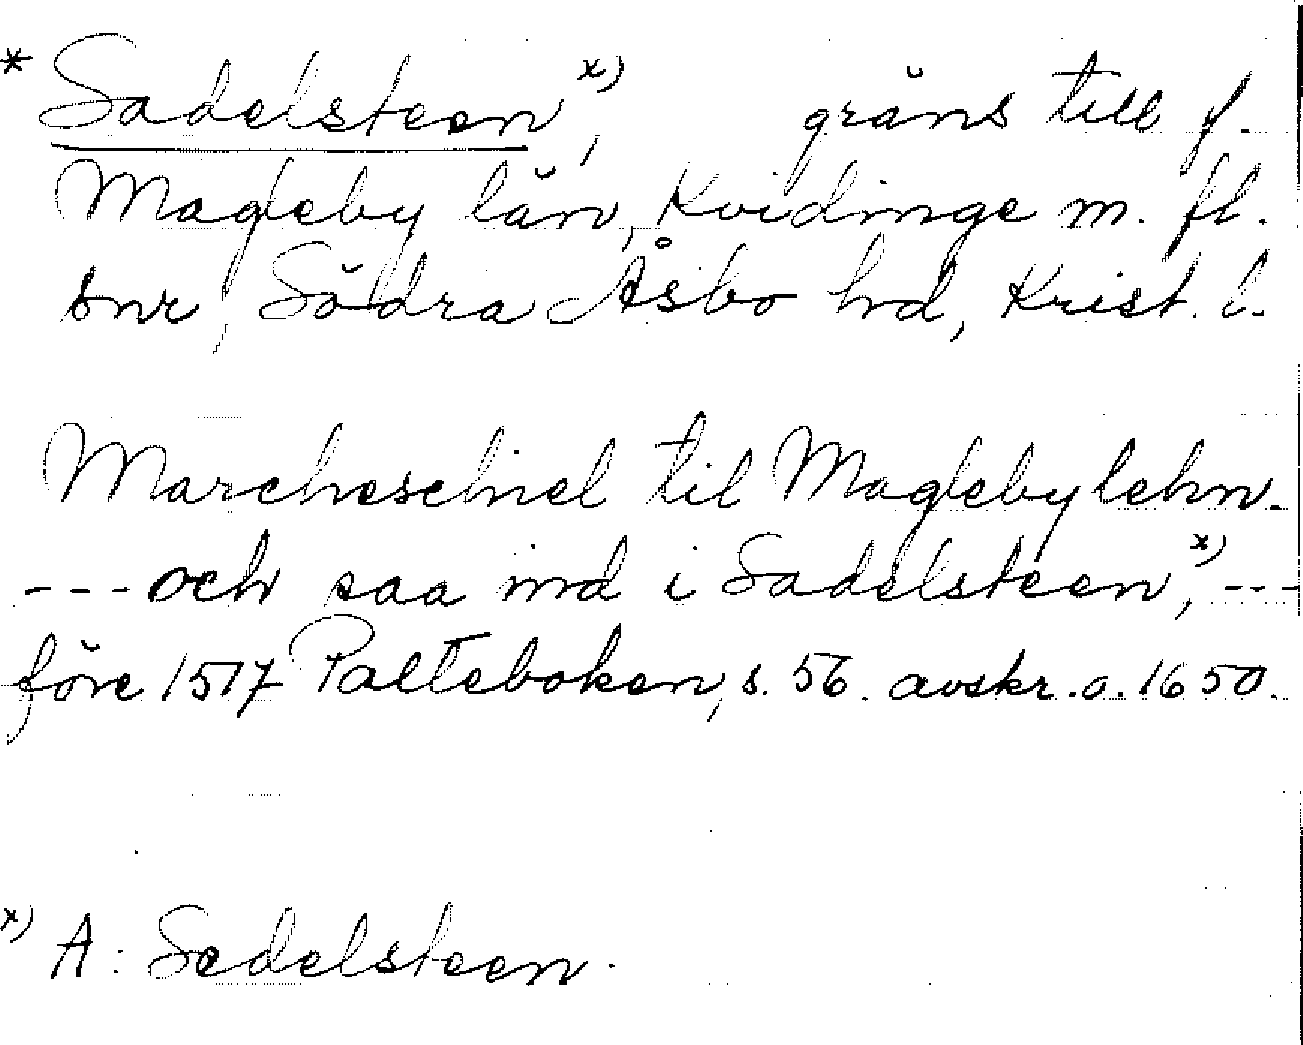 * Sadelsteen,x) gräns till f.
Magleby län, Kvidinge m. fl.
snr, Södra Åsbo hd, Krist. l.
Marcheschiel til Magleby lehn.
---och saa ind i Sadelsteen,x)---
före 1517 Palteboken, s. 56. avskr. a. 1650.
x) A: Sedelsteen.